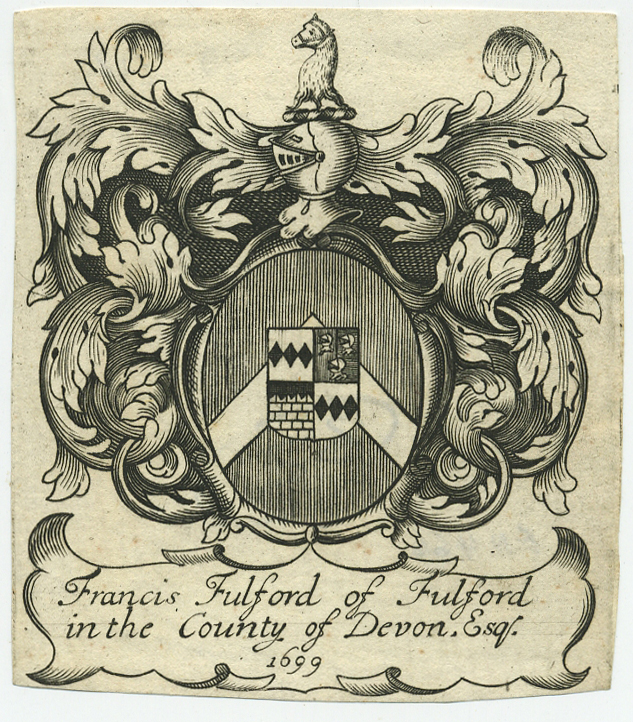 Francis Fulford of Fulford
in the County of Devon. Esqr.
1699